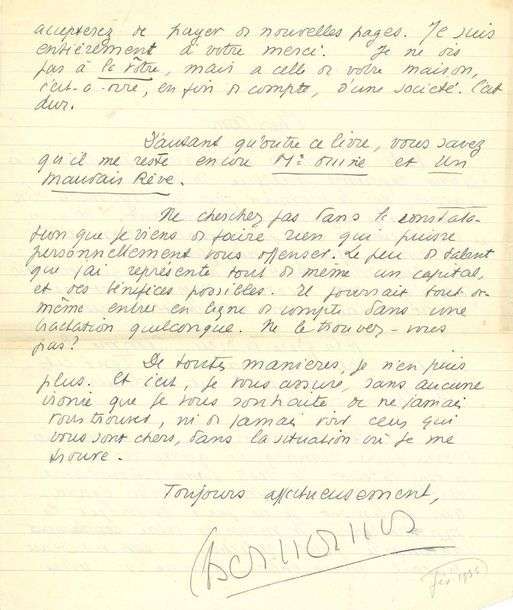 accepterez de payer de nouvelles pages. Je suis
entièrement à votre merci. Je ne dis
pas à la vôtre, mais à celle de votre maison,
c'est-à-dire, en fin de compte, d'une société. C'est
dur.
D'autant qu'outre ce livre, vous savez
qu'il me reste encore Mr Ouine et Un
Mauvais Rêve.
Ne cherchez pas dans la constata-
tion que je viens de faire rien qui puisse
personnellement vous offenser. Le peu de talent
que j'ai représente tout de même un capital,
et des bénéfices possibles. Il pourrait tout de
même entrer en ligne de compte dans une
tractation quelconque. Ne le trouvez-vous
pas?
De toutes manières, je n'en puis
plus. Et c'est, je vous assure, sans aucune
ironie que je vous souhaite de ne jamais
vous trouver, ni de jamais voir ceux qui
vous sont chers, dans la situation où je me
trouve.
Toujours affectueusement,
Bernanos